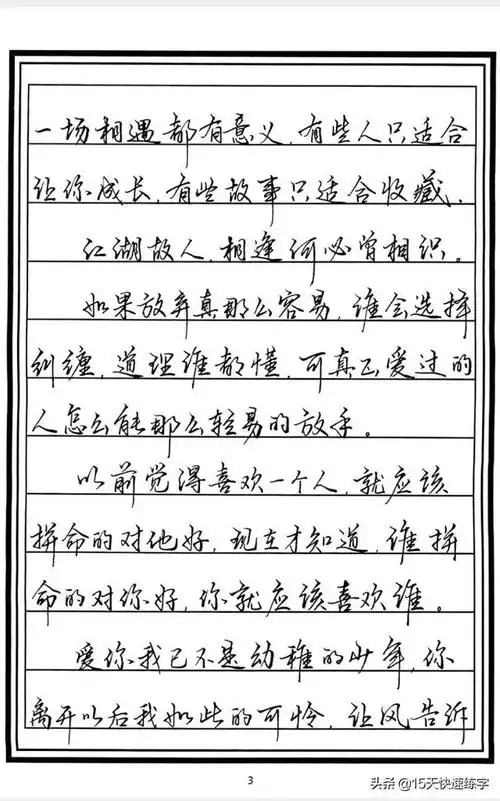 一场相遇都有意义，有些人只适合
让你成长，有些故事只适合收藏，
江湖故人，相逢何必曾相识。
如果放弃真那么容易，谁会选择
纠缠，道理谁都懂，可真正爱过的
人怎么能那么轻易的放手。
以前觉得喜欢一个人，就应该
拼命的对他好，现在才知道，谁拼
命的对你好，你就应该喜欢谁。
爱你我已不是幼稚的少年，你
离开以后我如此的可怜，让风告诉
3
头条 @15天快速练字